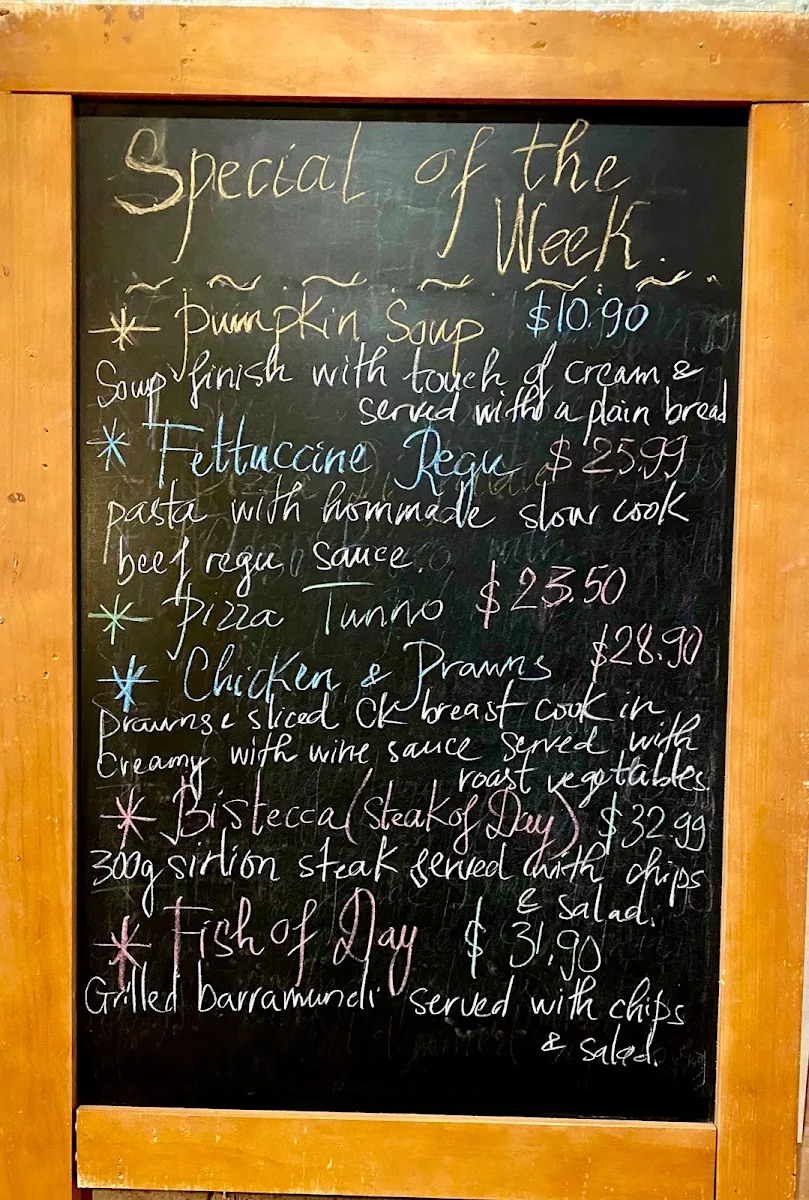 Special of the
Week.
* Pumpkin Soup $10.90
Soup finish with touch of cream &
served with a plain bread
* Fettuccine Regu $25.99
pasta with hommade slow cook
beef regu sauce.
* Pizza Tunno $23.50
* Chicken & Prawns $28.90
Prawns & sliced CK breast cook in
creamy with wine sauce served with
roast vegetlables.
* Bistecca (Steak of Day) $32.99
300g sirlion steak served with chips
& salad.
* Fish of Day $31.90
Grilled barramundi served with chips
& salad.